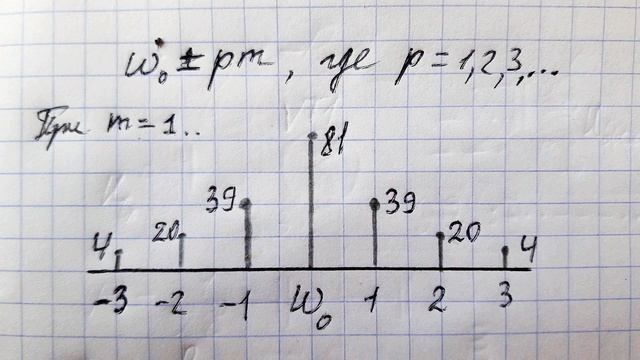 W₀ ± pm, где p = 1,2,3,...
При m = 1..
81
39 39
4 20 20 4
-3 -2 -1 W₀ 1 2 3